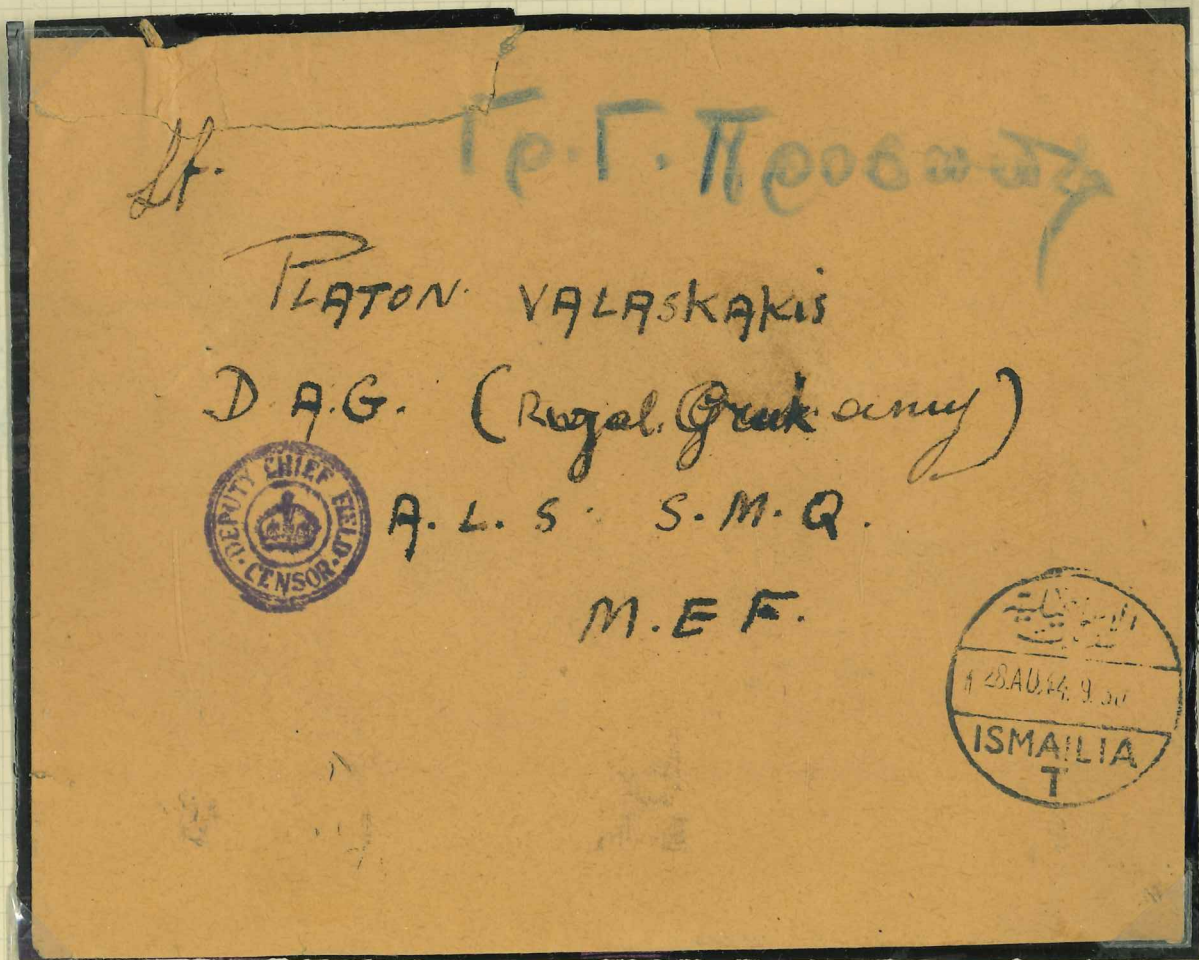 Γρ. Γ. Προσωπικού
Lt.
PLATON VALASKAKIS
D.A.G. (Royal Greek army)
DEPUTY CHIEF FIELD CENSOR
A.L.S. S.M.Q.
M.E.F.
الإسماعيلية
28.AU.44. 9.30
ISMAILIA
T